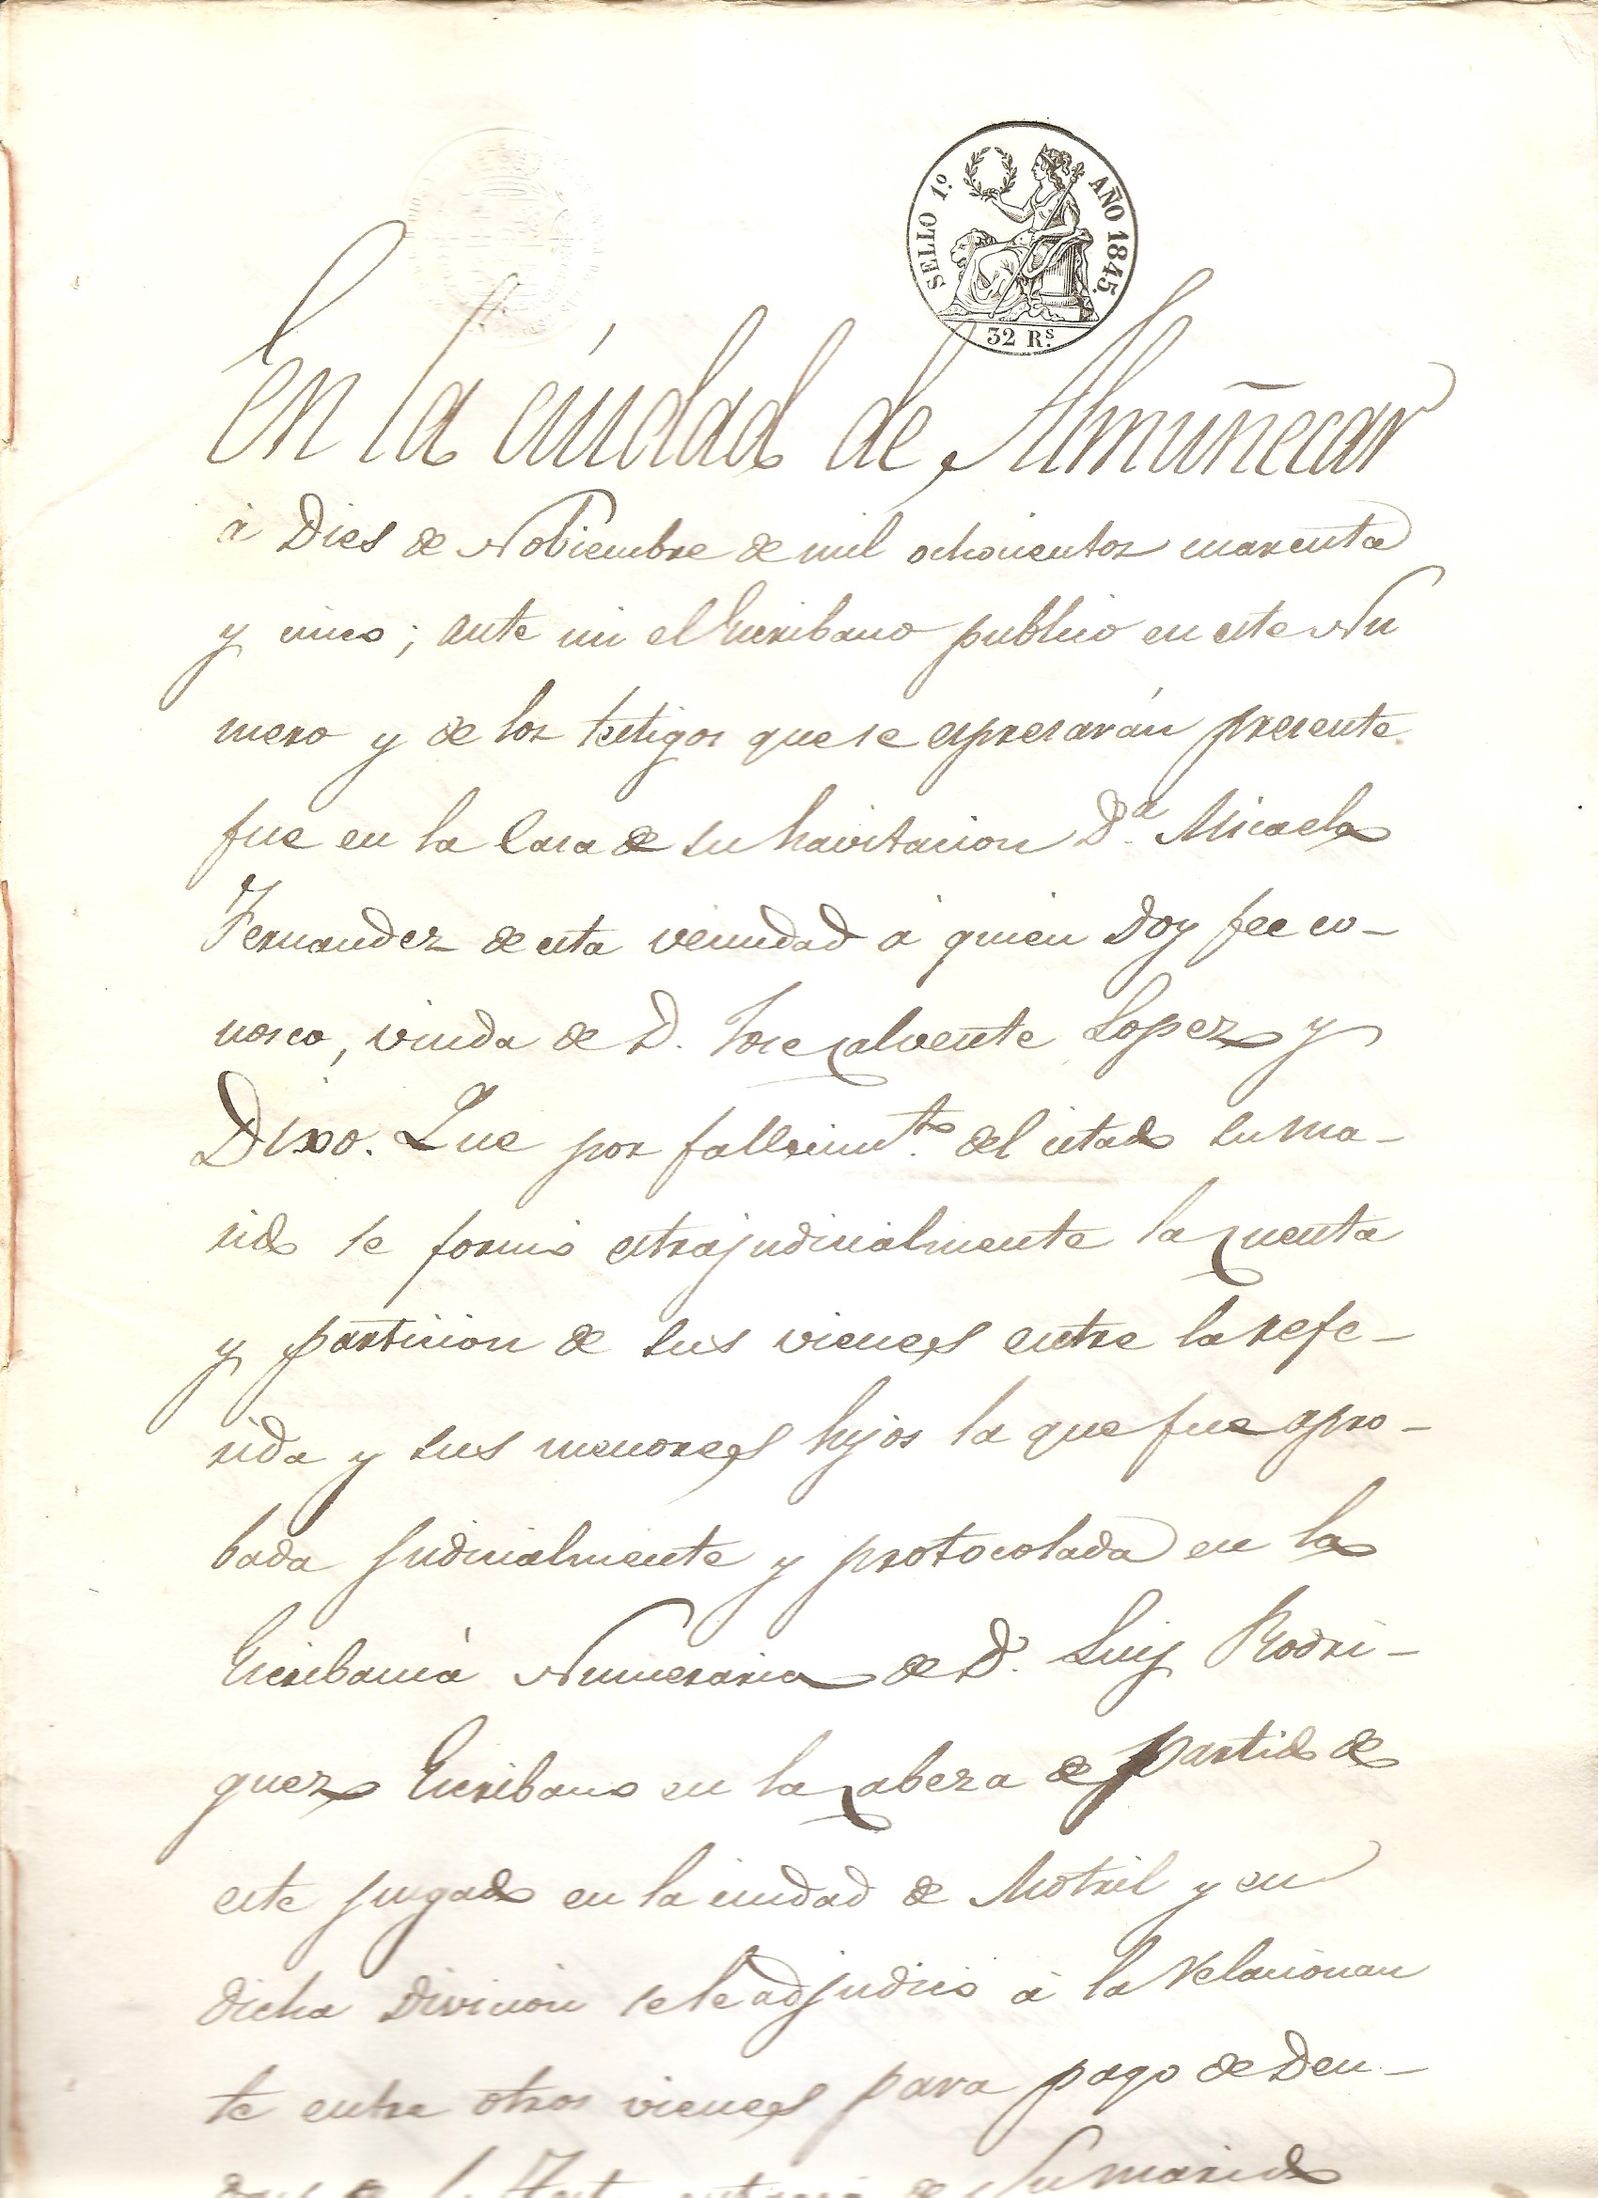 SELLO 1º. AÑO 1845.
32 Rs.
En la ciudad de Almuñecar
à Dies de Nobiembre de mil ochocientos cuarenta
y cinco; ante mi el Escribano publico en este Nu
mero y de los testigos que se espresarán presente
fue en la Casa de su havitacion Dª. Micaela
Fernandez de esta vecindad á quien Doy fee co-
nosco, viuda de D. Jose Calvente Lopez y
Dixo. Que por fallecimto. del citado su ma-
rido se formó estrajudicialmente la Cuenta
y particion de sus vienes entre la refe-
rida y sus menores hijos la que fue apro-
bada judicialmente y protocolada en la
Escribania Numeraria de D. Luis Rodri-
guez Escribano en la Cabeza de Partido de
este juzgado en la ciudad de Motril y en
dicha Divicion se le adjudicó á la relacionan
te entre otros vienes para pago de Deu-
das de su marido